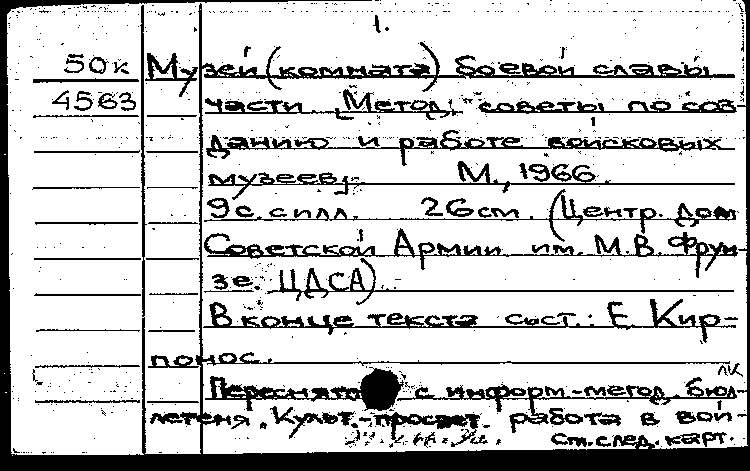 1.
50к Музей (комната) боевой славы
4563 части. [Метод. советы по соз-
данию и работе войсковых
музеев]. М., 1966.
9 с. с илл. 26 cm. (Центр. дом
Советской Армии им. М.В. Фрун-
зе. ЦДСА).
В конце текста сост.: Е. Кир-
понос.
Переснято с информ.-метод. бюл-
летеня „Культ.-просвет. работа в вой-
См. след. карт.